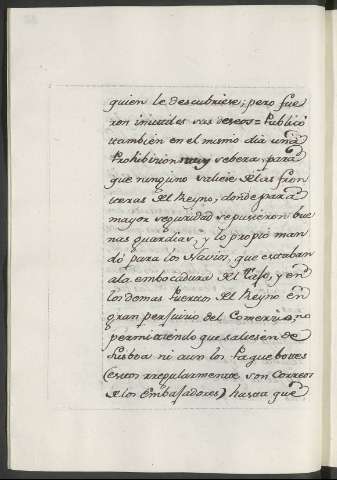 quien le descubriese; pero fue
ron inutiles sus deseos = Publicó
ttambien en el mismo dia una
Prohibicion muy sebera, para
que ninguno saliese de las fron
tteras del Reyno, donde para
mayor seguridad se pusieron bue
nas guardias; y lo propio man
dó para los Navios, que estaban
a la embocadura del Tajo, y en
los demas Puertos del Reyno en
gran perjuicio del Comercio, no
permittiendo que saliesen de
Lisboa ni aun los Paquebottes
(estos rregularmente son Correos
de los Embajadores) hasta que